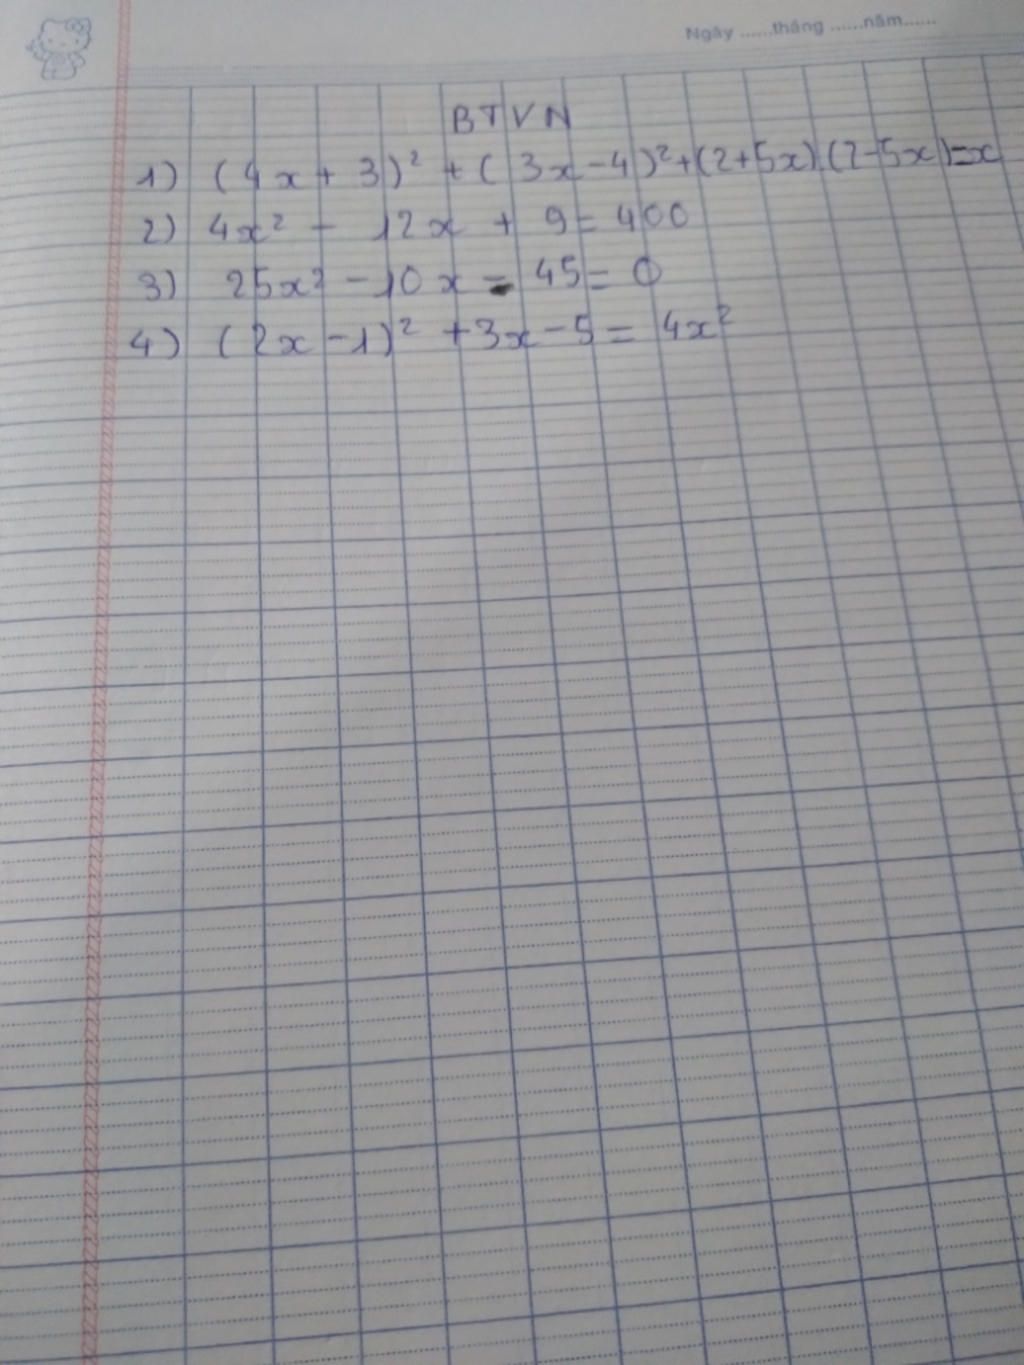 Ngày ......tháng ......năm......
BTVN
1) (4x + 3)² + (3x - 4)² + (2+5x).(2-5x) = x
2) 4x² - 12x + 9 = 400
3) 25x² - 10x - 45 = 0
4) (2x - 1)² + 3x - 5 = 4x²